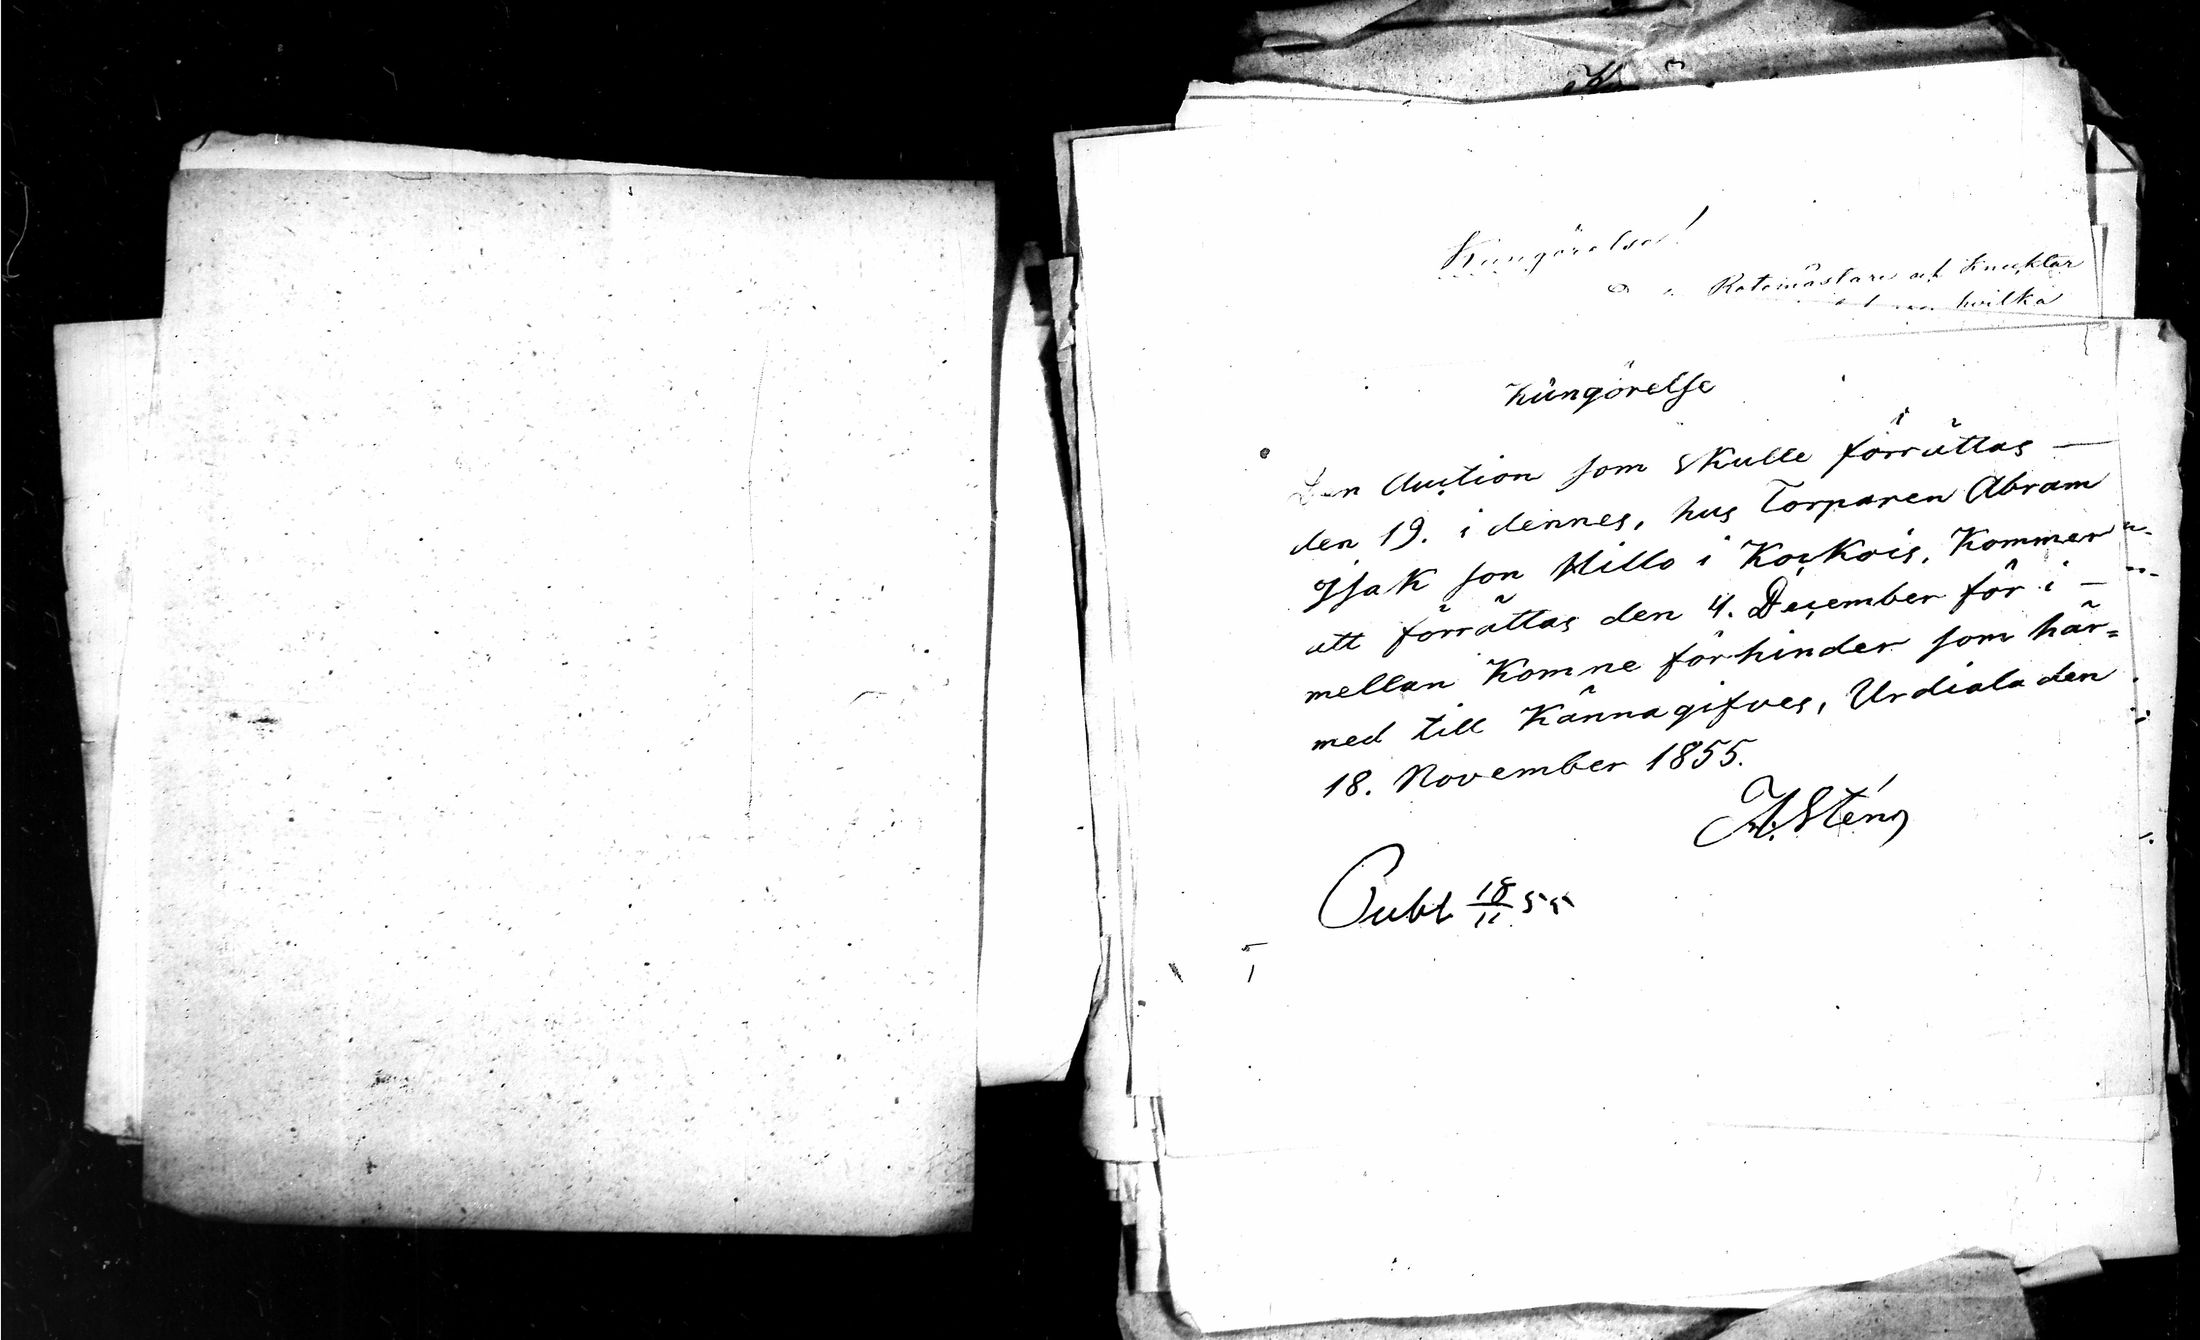 Kungörelse!
Rotemästare och Knecktar
hvilka
Kungörelse
Den Auction som skulle förrättas —
den 19. i dennes, hus Torparen Abram
Isak son Hillo i Kockois, Kommer
att förrättas den 4. December för i —
mellan Komne förhinder som här=
med till Känna gifves, Urdiala den
18. November 1855.
Stén
Publ 18/11 55